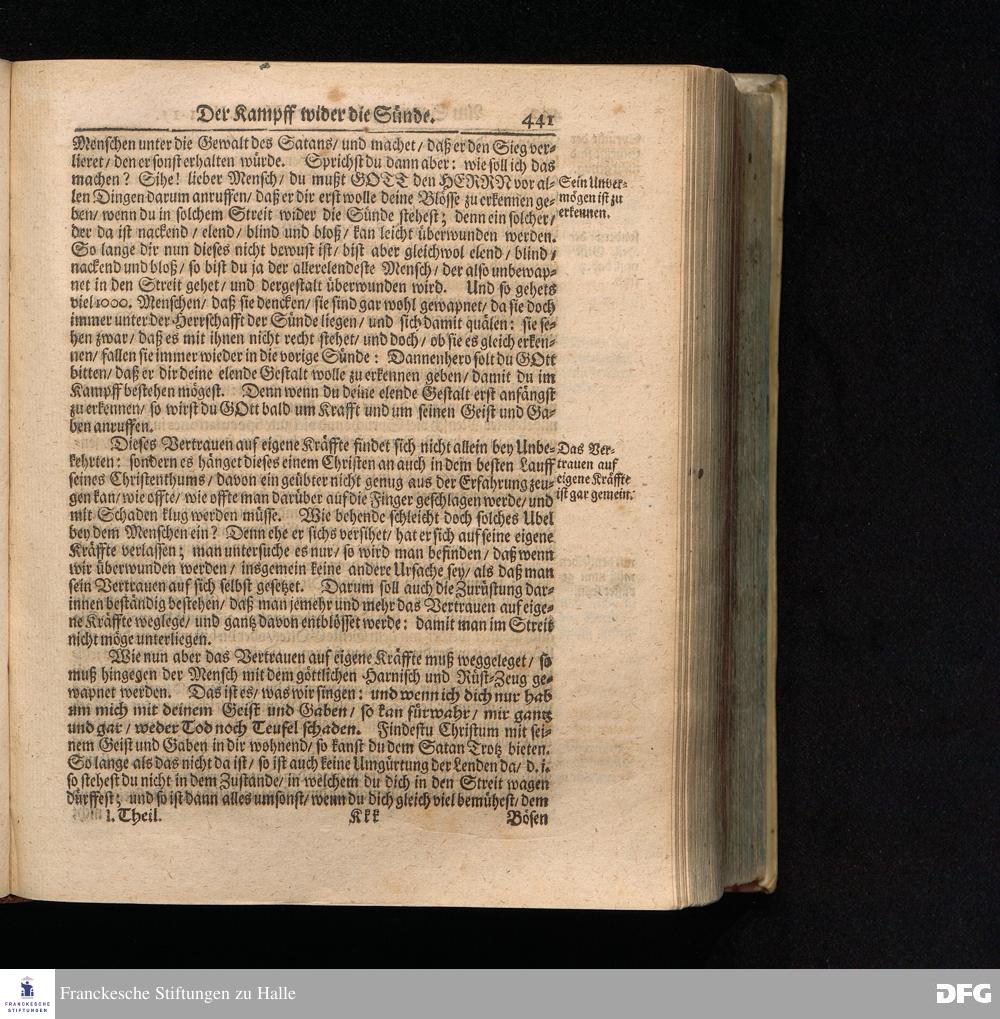 Der Kampff wider die Sünde. 441
Menschen unter die Gewalt des Satans/ und machet/ daß er den Sieg ver-
lieret/ den er sonst erhalten würde. Sprichst du dann aber: wie soll ich das
machen? Sihe! lieber Mensch/ du mußt GOTT den HERRN vor al-
len Dingen darum anruffen/ daß er dir erst wolle deine Blösse zu erkennen ge-
ben/ wenn du in solchem Streit wider die Sünde stehest; denn ein solcher/
der da ist nackend/ elend/ blind und bloß/ kan leicht überwunden werden.
So lange dir nun dieses nicht bewust ist/ bist aber gleichwol elend/ blind/
nackend und bloß/ so bist du ja der allerelendeste Mensch/ der also unbewap-
net in den Streit gehet/ und dergestalt überwunden wird. Und so gehets
viel 1000. Menschen/ daß sie dencken/ sie sind gar wohl gewapnet/ da sie doch
immer unter der Herrschafft der Sünde liegen/ und sich damit quälen: sie se-
hen zwar/ daß es mit ihnen nicht recht stehet/ und doch/ ob sie es gleich erken-
nen/ fallen sie immer wieder in die vorige Sünde: Dannenhero solt du GOtt
bitten/ daß er dir deine elende Gestalt wolle zu erkennen geben/ damit du im
Kampff bestehen mögest. Denn wenn du deine elende Gestalt erst anfängst
zu erkennen/ so wirst du GOtt bald um Krafft und um seinen Geist und Ga-
ben anruffen.
Sein Unver-
mögen ist zu
erkennen.
Dieses Vertrauen auf eigene Kräffte findet sich nicht allein bey Unbe-
kehrten: sondern es hänget dieses einem Christen an auch in dem besten Lauff
seines Christenthums/ davon ein geübter nicht genug aus der Erfahrung zeu-
gen kan/ wie offte/ wie offte man darüber auf die Finger geschlagen werde/ und
mit Schaden klug werden müsse. Wie behende schleicht doch solches Ubel
bey dem Menschen ein? Denn ehe er sichs versihet/ hat er sich auf seine eigene
Kräffte verlassen; man untersuche es nur/ so wird man befinden/ daß wenn
wir überwunden werden/ insgemein keine andere Ursache sey/ als daß man
sein Vertrauen auf sich selbst gesetzet. Darum soll auch die Zurüstung dar-
innen beständig bestehen/ daß man jemehr und mehr das Vertrauen auf eige-
ne Kräffte weglege/ und gantz davon entblösset werde: damit man im Streit
nicht möge unterliegen.
Das Ver-
trauen auf
eigene Kräffte
ist gar gemein.
Wie nun aber das Vertrauen auf eigene Kräffte muß weggeleget/ so
muß hingegen der Mensch mit dem göttlichen Harnisch und Rüst-Zeug ge-
wapnet werden. Das ist es/ was wir singen: und wenn ich dich nur hab
um mich mit deinem Geist und Gaben/ so kan fürwahr/ mir gantz
und gar/ weder Tod noch Teufel schaden. Findestu Christum mit sei-
nem Geist und Gaben in dir wohnend/ so kanst du dem Satan Trotz bieten.
So lange als das nicht da ist/ so ist auch keine Umgürtung der Lenden da/ d. i.
so stehest du nicht in dem Zustande/ in welchem du dich in den Streit wagen
dürffest; und so ist dann alles umsonst/ wenn du dich gleich viel bemühest/ dem
1. Theil. Kkk Bösen
FRANCKESCHE
STIFTUNGEN
Franckesche Stiftungen zu Halle
DFG